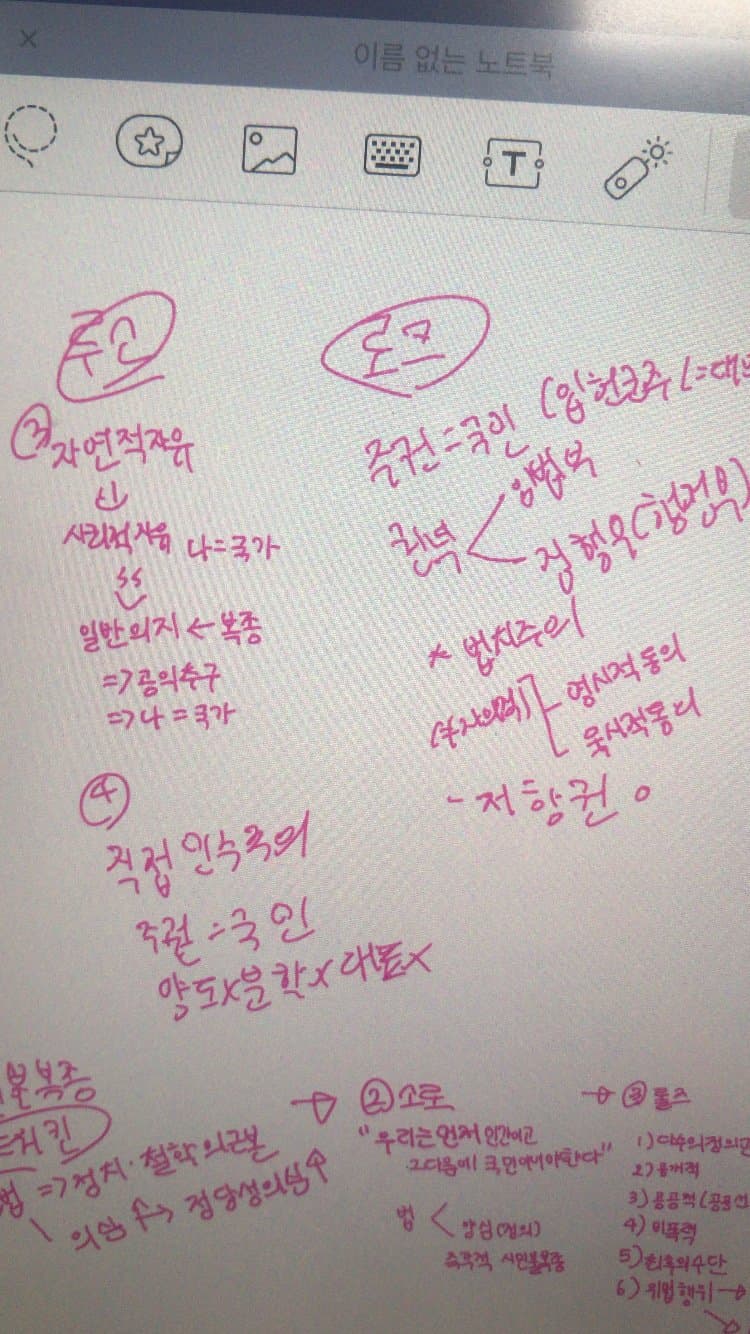 이름 없는 노트북
T
루소
③ 자연적자유
사회적자유 나=국가
일반의지 ← 복종
=> 공익추구
=> 나 = 국가
④
직접민주주의
주권 = 국민
양도x 분할x 대표x
로크
주권 = 국민 (입헌군주
권력 < 입법부
집행부(행정부)
* 법치주의
명시적동의
묵시적동의
- 저항권 o
불복종
드워킨
법 => 정치·철학의
의심 ↑→ 정당성의심 ↑
→ ② 소로
"우리는 먼저 인간이고
그다음에 국민이어야한다"
법 < 양심(정의)
즉각적 시민불복종
→ ③ 롤즈
1) 다수의정의
2)
3) 공공적(공
4) 비폭력
5) 최후의수단
6) 위법행위 →